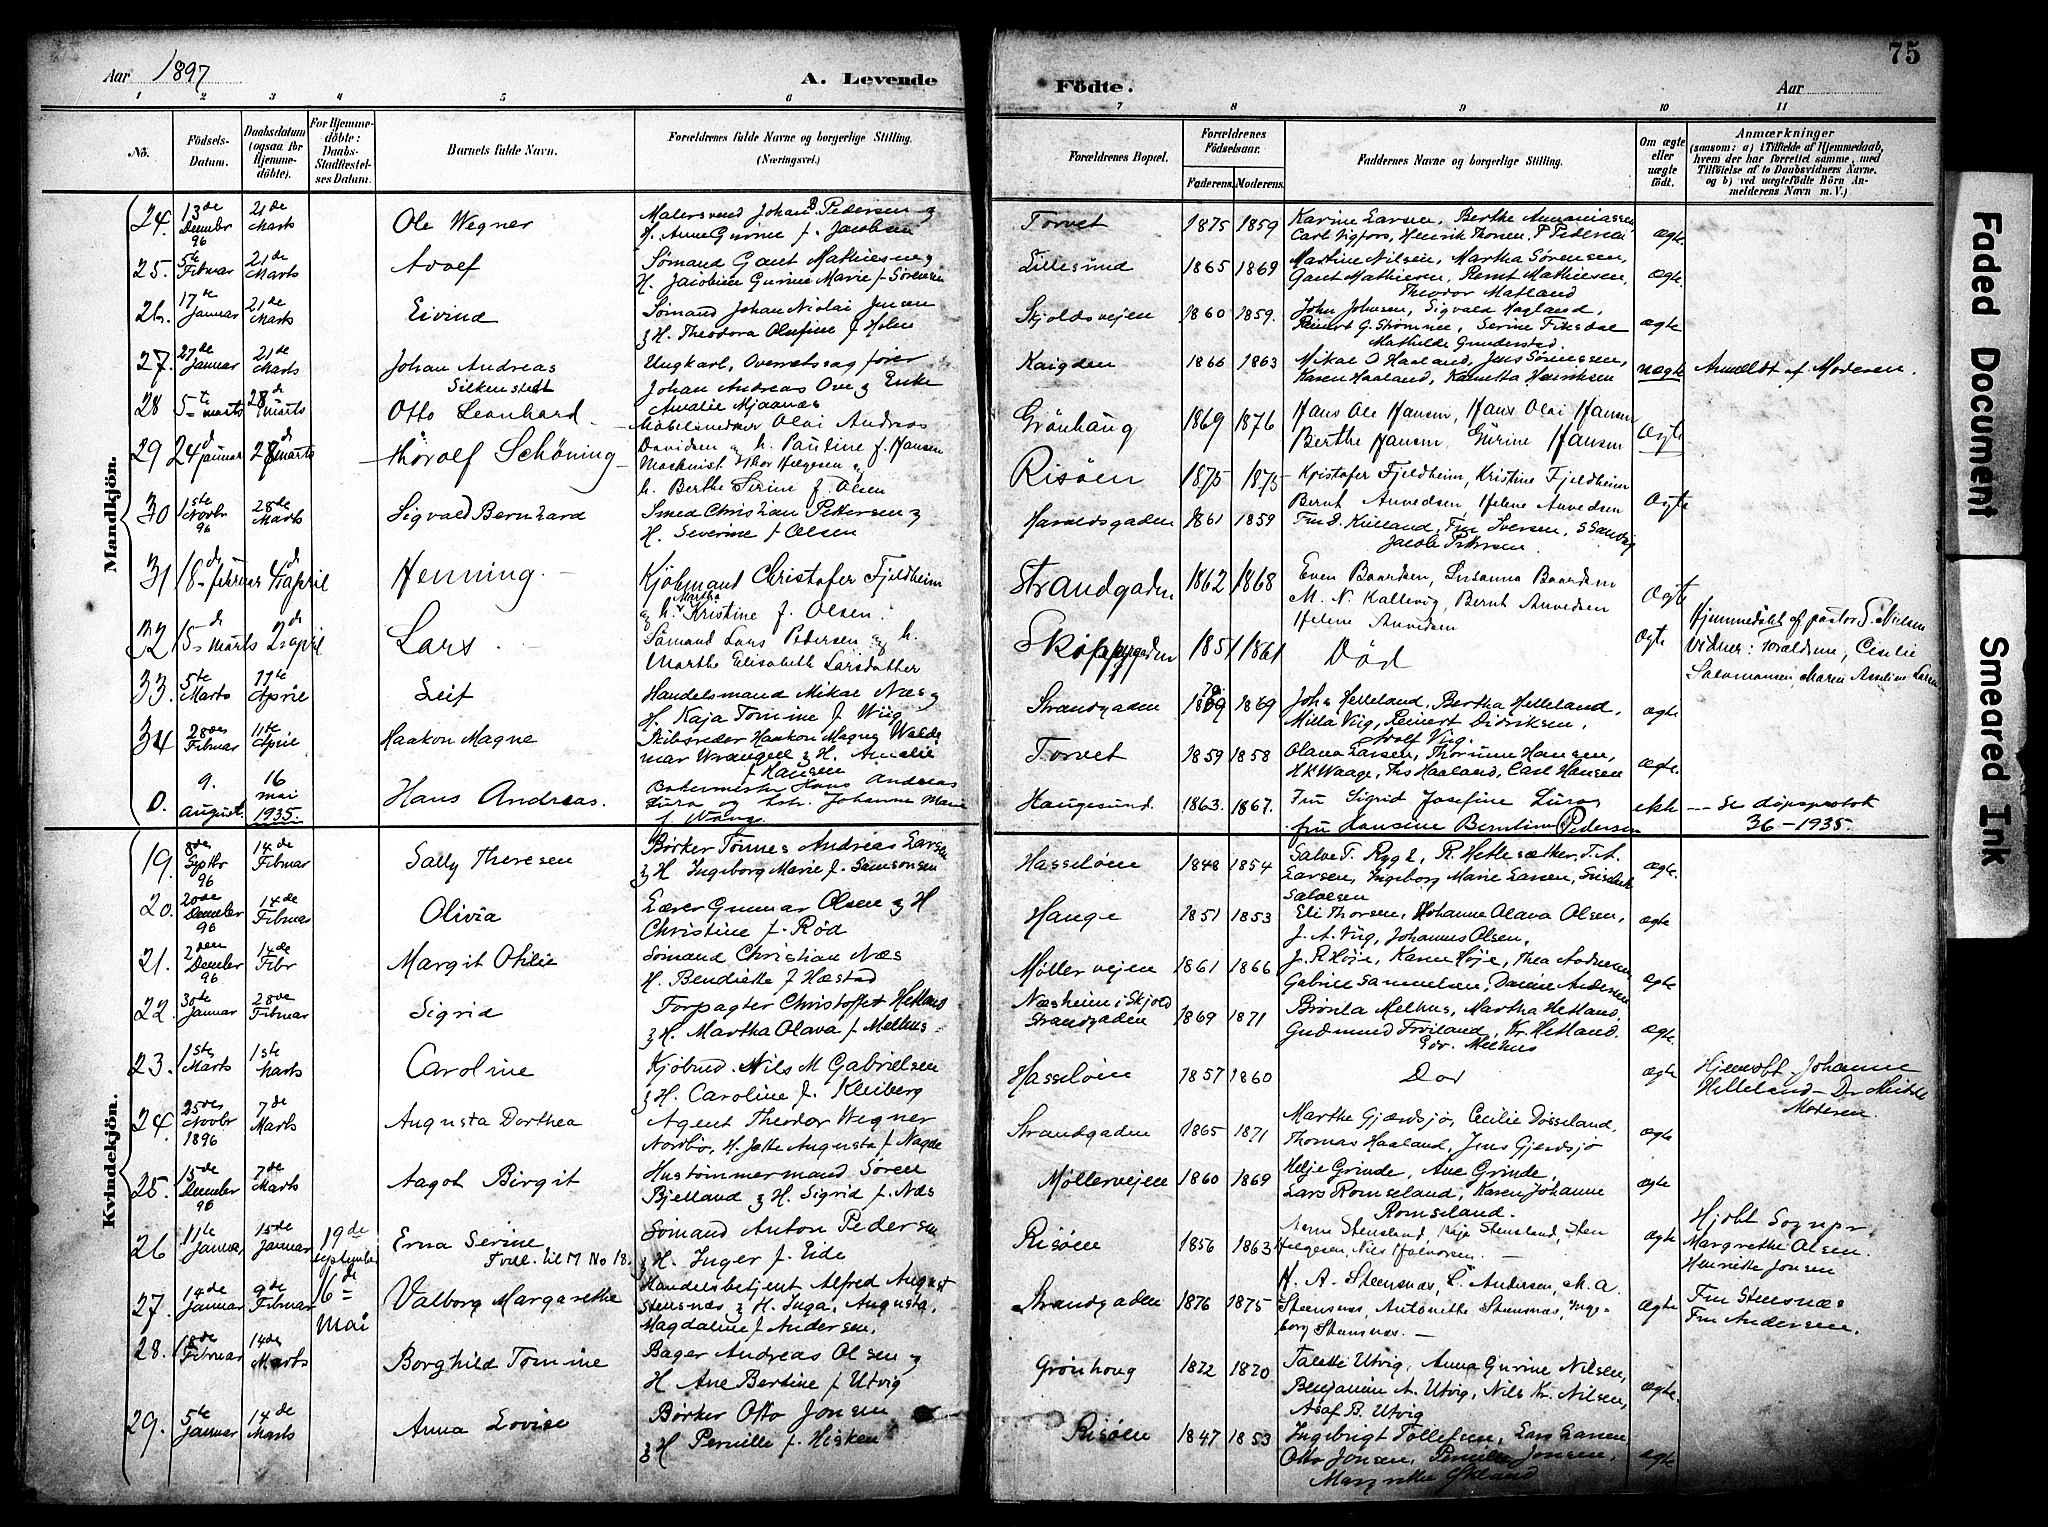 75
Aar 1897
A. Levende
Födte.
Aar
1 2 3 4 5 6 7 8 9 10 11
No.
Födsels-Datum.
Daabsdatum (ogsaa for Hjemmedöbte).
For Hjemmedöbte: Daabs-Stadfæstelses Datum.
Barnets fulde Navn.
Forældrenes fulde Navne og borgerlige Stilling. (Næringsvei.)
Forældrenes Bopæl.
Forældrenes Födselsaar.
Faderens. Moderens.
Faddernes Navne og borgerlige Stilling.
Om ægte eller uægte födt.
Anmærkninger (saasom: a) i Tilfælde af Hjemmedaab, hvem der har forrettet samme, med Tilföielse af to Daabsvidners Navne, og b) ved uægtefödte Börn Anmelderens Navn m. V.)
Mandkjön.
24. 13de Decmbr 96 21de Marts Ole Wegner
Malersvend Johan B Pedersen &
H. Anne Gurine f. Jacobsen
Torvet 1875 1859 Karine Larsen, Berthe Annaniassen,
Carl Vigfors, Henrik Thorsen, P Pedersen ægte.
25. 5te Februar 21de Marts Adolf
Sømand Gant Mathiesen &
H. Jacobine Gurine Marie f. Sørensen
Lillesund 1865 1869 Martine Nilsen, Martha Sørensen,
Gant Mathiesen, Bernt Mathiesen,
Theodor Matland ægte.
26. 17de Januar 21de Marts Eivind
Sømand Johan Nicolai Jensen
& H. Theodora Olufine f. Holm
Skjoldsvejen 1860 1859. John Johnsen, Sigvald Hagland,
Reinert G. Strømnæs, Serine Fiksdal
Mathilde Gunderstad. ægte
27. 27de Januar 21de Marts Johan Andreas
Silkenstedt
Ungkarl, Overretssagfører
Johan Andreas Ove & Enke
Amalie Mjaanæs
Kaigden 1866 1863 Mikal O Haaland, Jens Sørenssen,
Karen Haaland, Henriksen uægte Anmeldt af Moderen.
28 5te marts 28de marts Otto Leonhard
Møbelsnedker Olai Andreas
Davidsen og h. Pauline f. Hansen
Grönhaug 1869 1876 Hans Ole Hansen, Hans Olai Hansen
Berthe Hansen, Gurine Hansen Ægte
29 24d januar 28d marts Thorolf Schöning
Maskinist Thor Helgesen og
h. Berthe Serine f. Olsen
Risöen 1875 1875 Kristofer Fjeldheim, Kristine Fjeldheim
Bernt Anvedsen, Helene Anvedsen Ægte
30 1ste Novbr 96 28de Marts Sigvald Bernhard
Smed Christian Pettersen &
H. Severine f. Olsen
Haraldsgaden 1861 1859 Fru D. Kielland, Fru Iversen, S Sandvig
Jacob Pettersen
31 18de februar 4de april Henning
Kjöbmand Christofer Fjeldheim
og h. Martha Kristine f. Olsen.
Strandgaden 1862 1868 Even Baardsen, Susanna Baardsen
M. N. Kallevig, Bernt Anvedsen
Helene Anvedsen Ægte
32 15de Marts 2de april Lars
Sömand Lars Pedersen og h.
Marthe Elisabeth Larsdatter
Skippergaden 1851 1861 Död ægte
Hjemmedöbt af pastor S. Nielsen
Vidner: Forældrene, Cecilie
Salomonsen, Maren Larsen
33. 5te Marts 11te April Leif
Handelsmand Mikal Næs &
H. Kaja Tomine f. Wiig
Strandgaden 1869 70 1869 John Helleland, Bertha Helleland,
Milla Viig, Reinert Didriksen,
Adolf Viig. ægte
34 28de Februar 11te April Haakon Magne
Skibsreder Haakon Magnus Walde
mar Wrangell & H. Amalie
f. Hansen
Torvet 1859 1858 Olava Larsen, Thorine Hansen,
H K Waage, Ths Haaland, Carl Hansen ægte.
0. 9. august. 16 mai 1935. Hans Andreas.
Bakermester Hans Andreas
Lura og hstr. Johanne Marie
Haugesund. 1863. 1867. Fru Sigrid Josefine Lura,
fru Hansine Berntine Pedersen ekte --- se dåpsprotok
36 - 1935.
Kvindekjön.
19. 8de Septbr 96 14de Februar Sally Theresen
Bødker Tønnes Andreas Larsen
& H. Ingeborg Marie f. Samsonsen
Hasseløen 1848 1854 Salve T. Rygg, R. Hetlesæther, T. A.
Larsen, Ingeborg Marie Larsen,
Salvesen ægte.
20. 20de Decmber 96 14de Februar Olivia
Lærer Gunnar Olsen & H
Christine f. Rød
Hauge 1851 1853 Eli Thorsen, Johanne Olava Olsen,
J. A. Viig, Johannes Olsen, ægte
21. 2den Decmber 96 14de Febr Margit Otilie
Sømand Christian Næs
H. Bendikte f. Hæstad
Møllervejen 1861 1866 J. R. Høje, Karen Høje, Thea Andersen
Gabriel Samuelsen, Daniel Andersen ægte
22. 30te Januar 28de Februar Sigrid
Forpagter Christoffer Hetland
& H. Martha Olava f. Melhus.
Næsheim i Skjold
Strandgaden 1869 1871 Brønla Melhus, Martha Hetland,
Gudmund Frøiland, Kr. Hetland.
Edv. Melhus ægte.
23. 1ste Marts 1ste Marts Caroline
Kjøbmd. Nils M Gabrielsen
& H. Caroline f. Kleiberg
Hasseløen 1857 1860 Død ægte Hjemdbt. Johanne
Helleland
Moderen.
24. 25de Novbr 1896 7de Marts Augusta Dorthea
Agent Theodor Wegner
Nordbø, H. Jette Augusta f. Nagde
Strandgaden 1865 1871 Marthe Gjærdsjø, Cecilie Døsseland,
Thomas Haaland, Jens Gjerdsjø ægte
25. 15de Decmber 96 7de Marts Aagot Birgit
Hustømmermand Søren
Bjelland & H. Sigrid f. Næs
Møllervejen 1860 1869 Helje Grinde, Ane Grinde,
Lars Romseland, Karen Johanne
Romseland. ægte
26 11te Januar 15de Januar 19de september Erna Serine
Født. til M No 18.
Sømand Anton Pedersen
& H. Inger f. Eide
Risøen 1856 1863 Arne Stensland, Kaja Stensland, Sten
Helgesen, Nils Halvorsen. ægte Hjdbt Sognpr
Margrethe Olsen.
Henriette Jonsen
27. 14de Januar 9de Februar 16de mai Valborg Margarethe
Handelsbetjent Alfred August
Stensnæs & H. Inga, Augusta,
Magdaline f. Andersen,
Strandgaden 1876 1875 H. A. Steensnæs, L. Andersen,
Steensnæs, Antonette Steensnæs, Inge-
borg Steensnæs. ægte Fru Stensnæs
Fru Andersen.
28. 18de Februar 14de Marts Borghild Tomine
Bager Andreas Olsen &
H Ane Bertine f. Utvig
Grønhoug 1872 1870 Talette Utvig, Anna Gurine Nilsen,
Benjamin A. Utvig, Nils Kr. Nilsen,
Asaf B. Utvig ægte.
29. 5te Januar 14de Marts Anna Lovise
Bødker Otto Jonsen
& H. Pernille f. Hisken
Risøen 1847 1853 Ingebrigt Tollefsen, Lars Larsen,
Otto Jonsen, Pernille Jonsen,
Margrethe Økland ægte
Faded Document
Smeared Ink